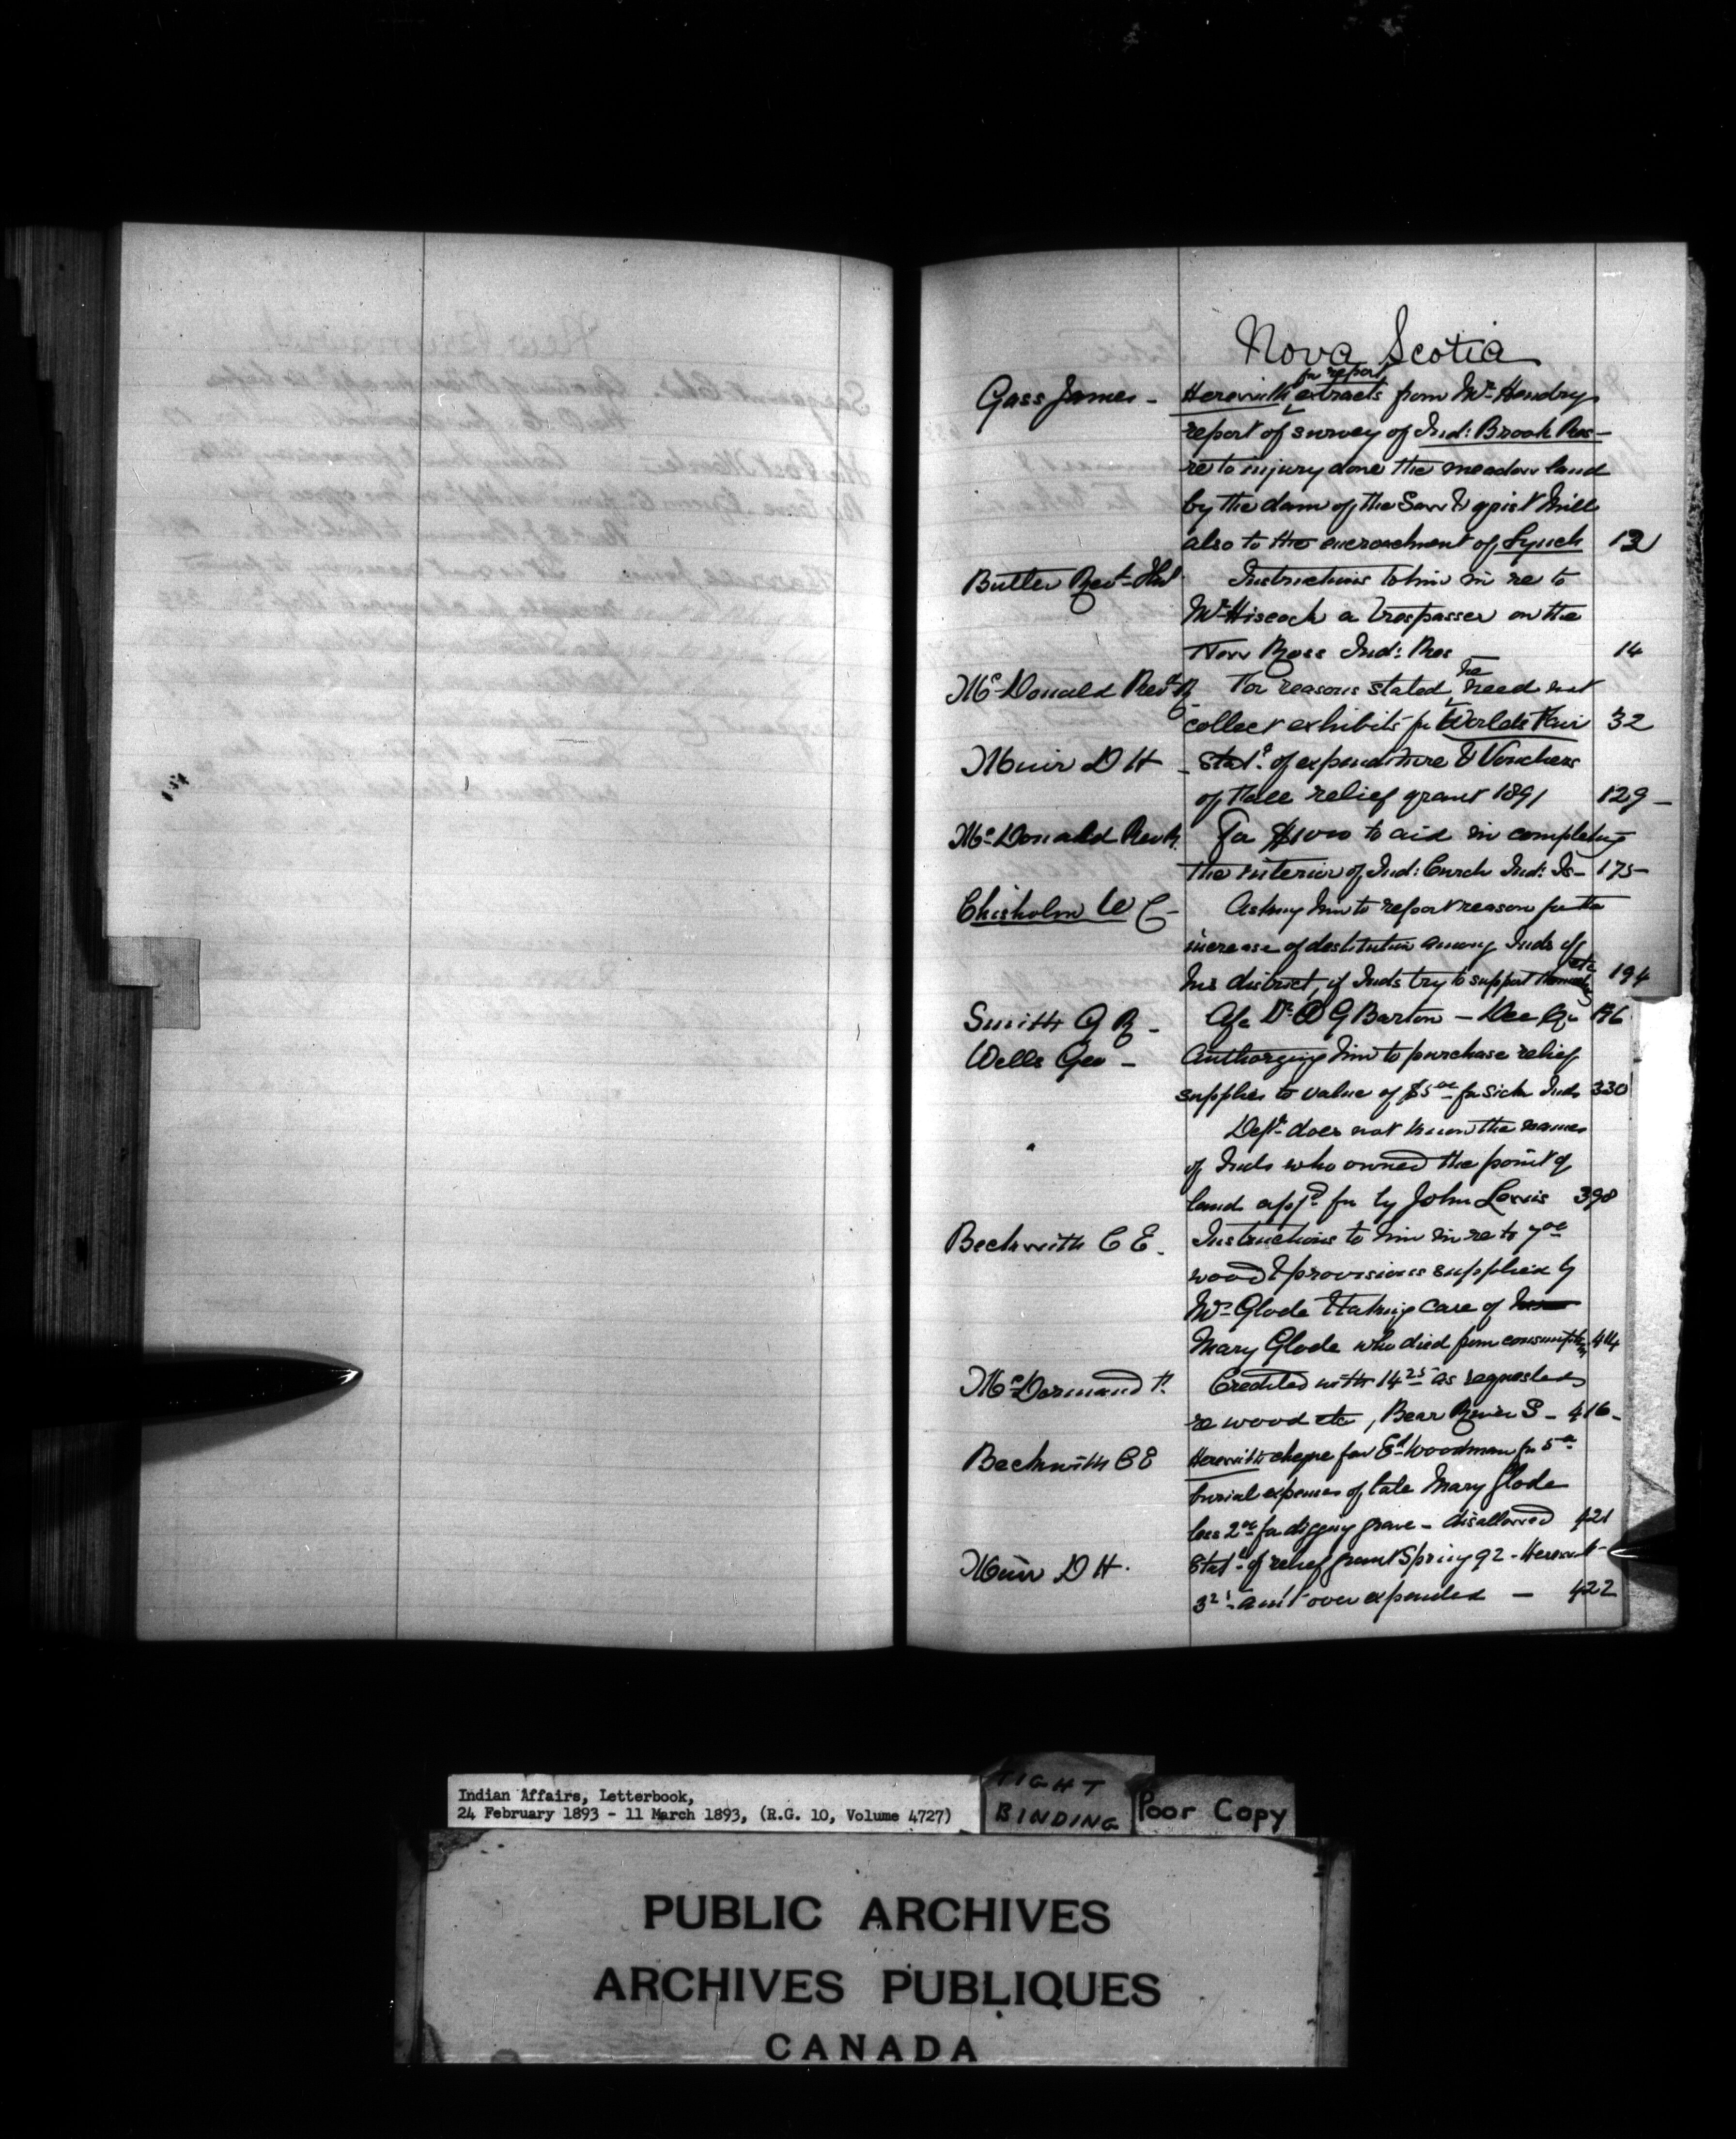 Nova Scotia
for report
Gass James - Herewith extracts from Mr Hendry
report of survey of Ind: Brook Res -
re to injury done the meadow land
by the dam of the Saw & grist Mill
also to the encroachment of Lynch 13
Butler Revd Instructions to him in re to
Mr Hiscock a trespasser on the
New Ross Ind: Res 14
he
McDonald Revd R For reasons stated need not
collect exhibits for Worlds Fair 32
Muir D H - Statt of expenditure & Vouchers
of relief grant 1891 129 -
McDonald Rev R. For $1000 to aid in completing
the interior of Ind: Church Ind: Is - 175 -
Chisholm W C - Asking him to report reason for the
increase of destitution among Inds of
etc
his district, if Inds try to support themselves 194
Smith G R - Afc Dr D G Barton - Dec Qr 196
Wells Geo - Authorizing him to purchase relief
supplies to value of $5 00 for sick Inds 330
Dept does not know the names
of Inds who owned the point of
land appd for by John Lewis 398
Beckwith C E. Instructions to him in re to 7 00
wood & provisions supplied by
Mr Glode & taking care of
Mary Glode who died from consumption 414
McDormand Credited with 14 25 as requested
re wood etc, Bear River S - 416 -
Beckwith C E Herewith cheque for Ed Woodman for 5
burial expenses of late Mary Glode
less 2 00 for digging grave - disallowed 421
Muir D H. Statt of relief grant Spring 92 - Herewith
3 21 amt over expended - 422
Indian Affairs, Letterbook,
24 February 1893 - 11 March 1893, (R.G. 10, Volume 4727)
TIGHT
BINDING
Poor Copy
PUBLIC ARCHIVES
ARCHIVES PUBLIQUES
CANADA